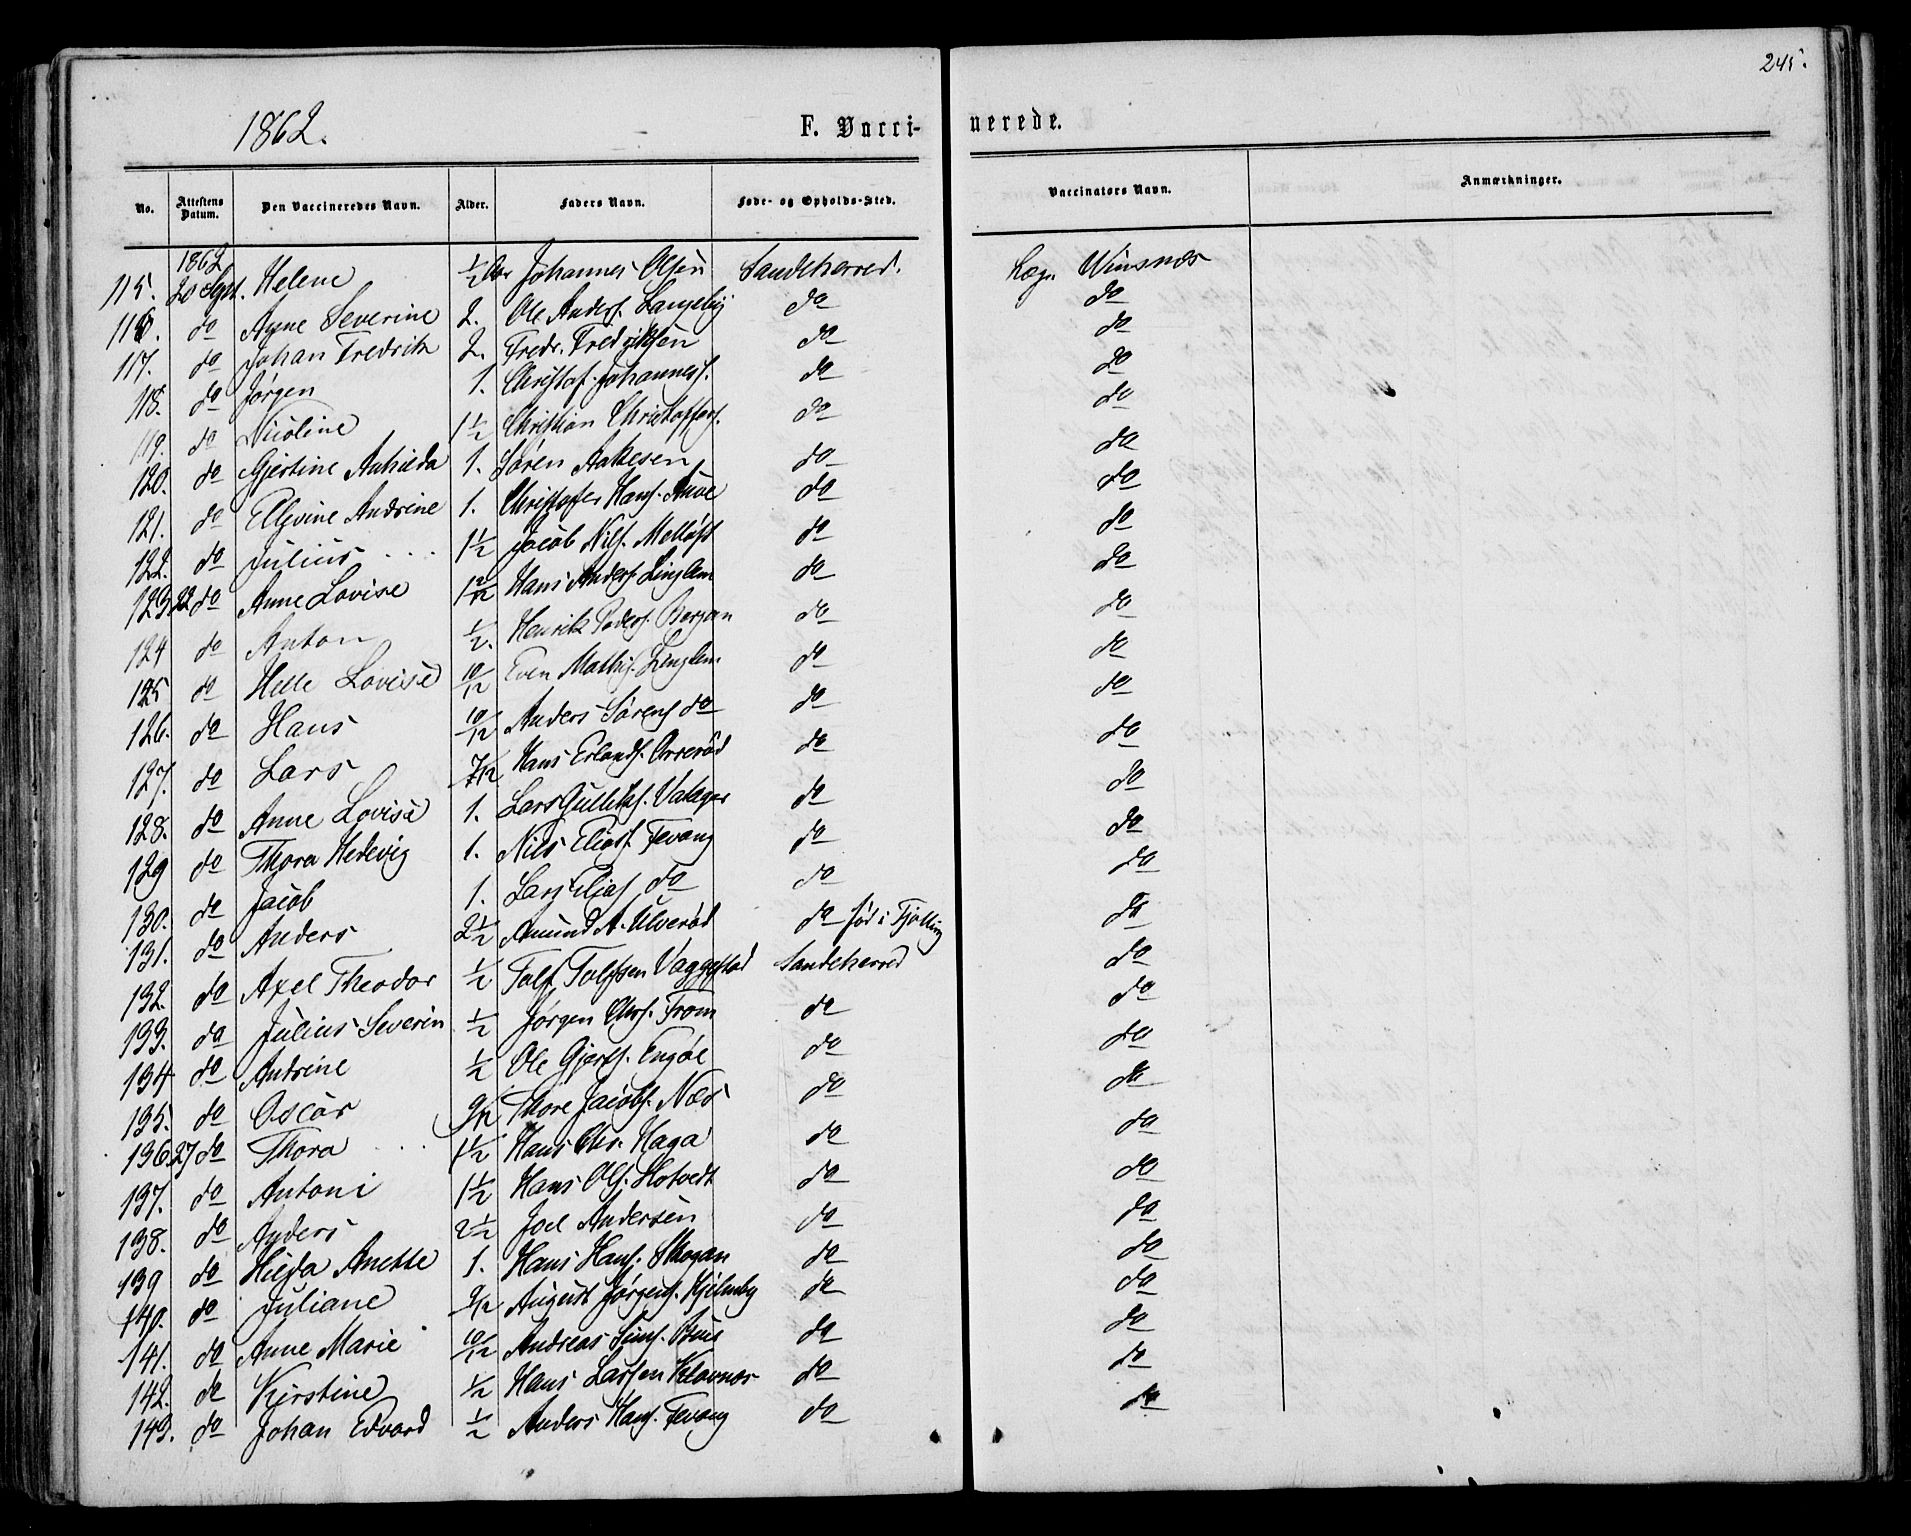 245.
1862.
F. Vacci- nerede.
No. Attestens Datum. Den Vaccineredes Navn. Alder. Faders Navn. Føde- og Opholds-Sted. Vaccinatørs Navn. Anmærkninger.
1862
115. 20 Sept. Helene 1/2 Aar Johannes Olsen Sandeherred. Læge Winsnes
116. do Agne Severine 2. Ole Anders. do do
117. do Johan Fredrik 2. Fredr. Fredriksen do do
118. do Jørgen 1. Christof. Johannes. do do
119. do Nicoline 1 1/2 Christian Christoffers. do do
120. do Gjertine 1. Søren Aakesen do do
121. do Ellevine Andrine 1. Christoffer Hans. do do
122. do Julius ... 1 1/2 Jacob Nils. do do
123. 22 do Anne Lovise 1 2/12 Hans Anders. Lingelem do do
124 do Anton 1/2. Henrik Peders. Bergan do do
125 do Helle Lovise 10/12 Even Mathis. Lingelem do do
126. do Hans 10/12 Anders Sørens. do do do
127. do Lars 7/12 Hans Erlands. Orrerød do do
128. do Anne Lovise 1. Lars Gulliks. do do
129 do Thora Hedevig 1. Nils Elias. Fevang do do
130. do Jacob 1. Lars Elias. do do do
131. do Anders 2 1/2 Amund A. Ulverød do fød i Tjølling do
132. do Axel Theodor 1/2 Tolf Tolfsen Vaggestad Sandeherred do
133. do Julius Severin 1/2 Jørgen Chrs. From do do
134 do Andrine 1/2 Ole Gjerts. Engøe do do
135. do Oscar 9/12 Thore Jacobs. Næs do do
136. 27 do Thora ... 1 1/2 Hans Chr. Haga do do
137. do Antoni 1 1/2 Hans Ols. Hotvedt do do
138. do Anders 2 1/2 Joel Andersen do do
139 do Hilda Anette 1. Hans Hans. Skogan do do
140. do Juliane 9/12 August Jørgens. Hjelmby do do
141. do Anne Marie 10/12 Andreas Sims. do do
142. do Kirstine 1/2 Hans Larssen Klavnes do do
143. do Johan Edvard 1/2 Anders Hans. Fevang do do